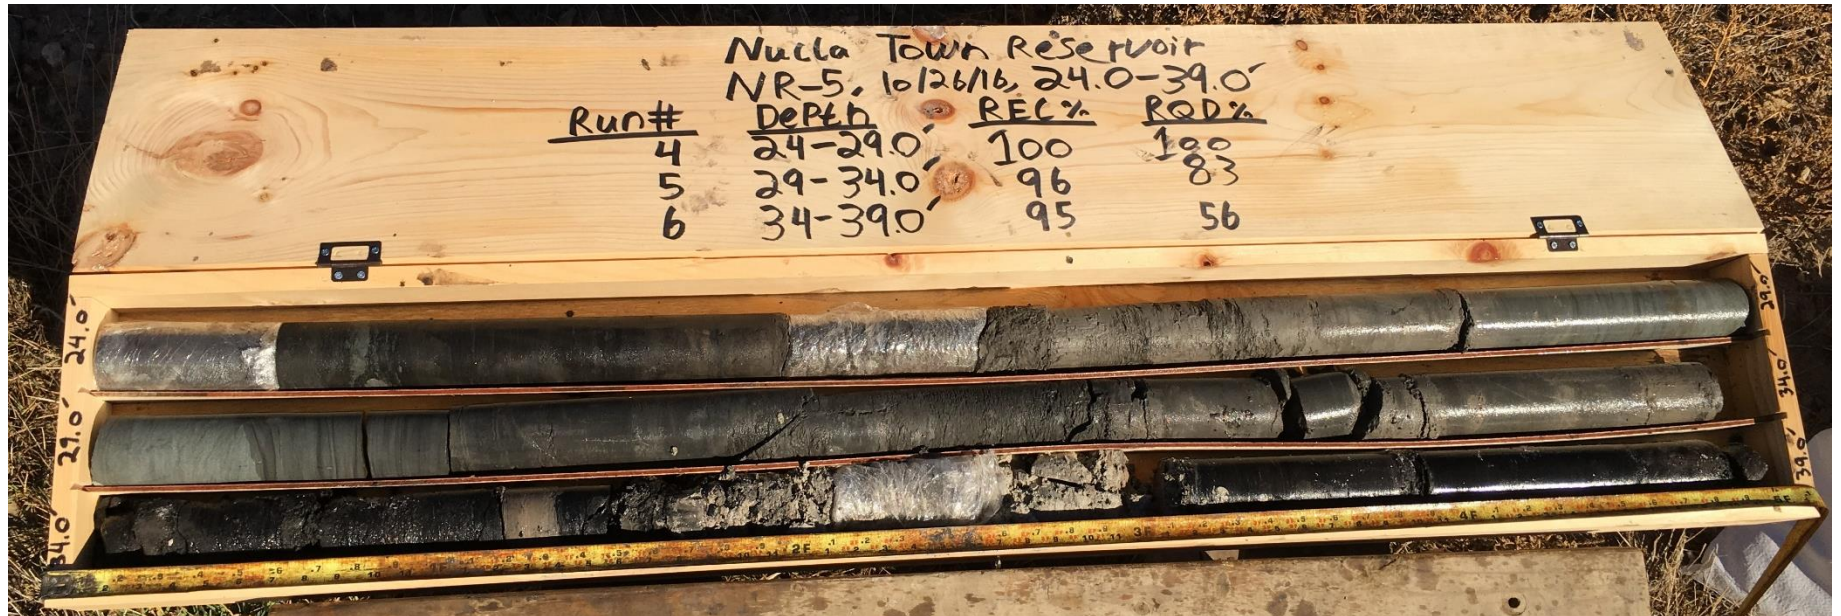 Nucla Town Reservoir
NR-5, 10/26/16, 24.0-39.0'
Run# Depth REC% RQD%
4 24-29.0' 100 100
5 29-34.0' 96 83
6 34-39.0' 95 56
24.0' 29.0'
29.0' 34.0'
34.0' 39.0'
1F 2F 3F 4F 5F